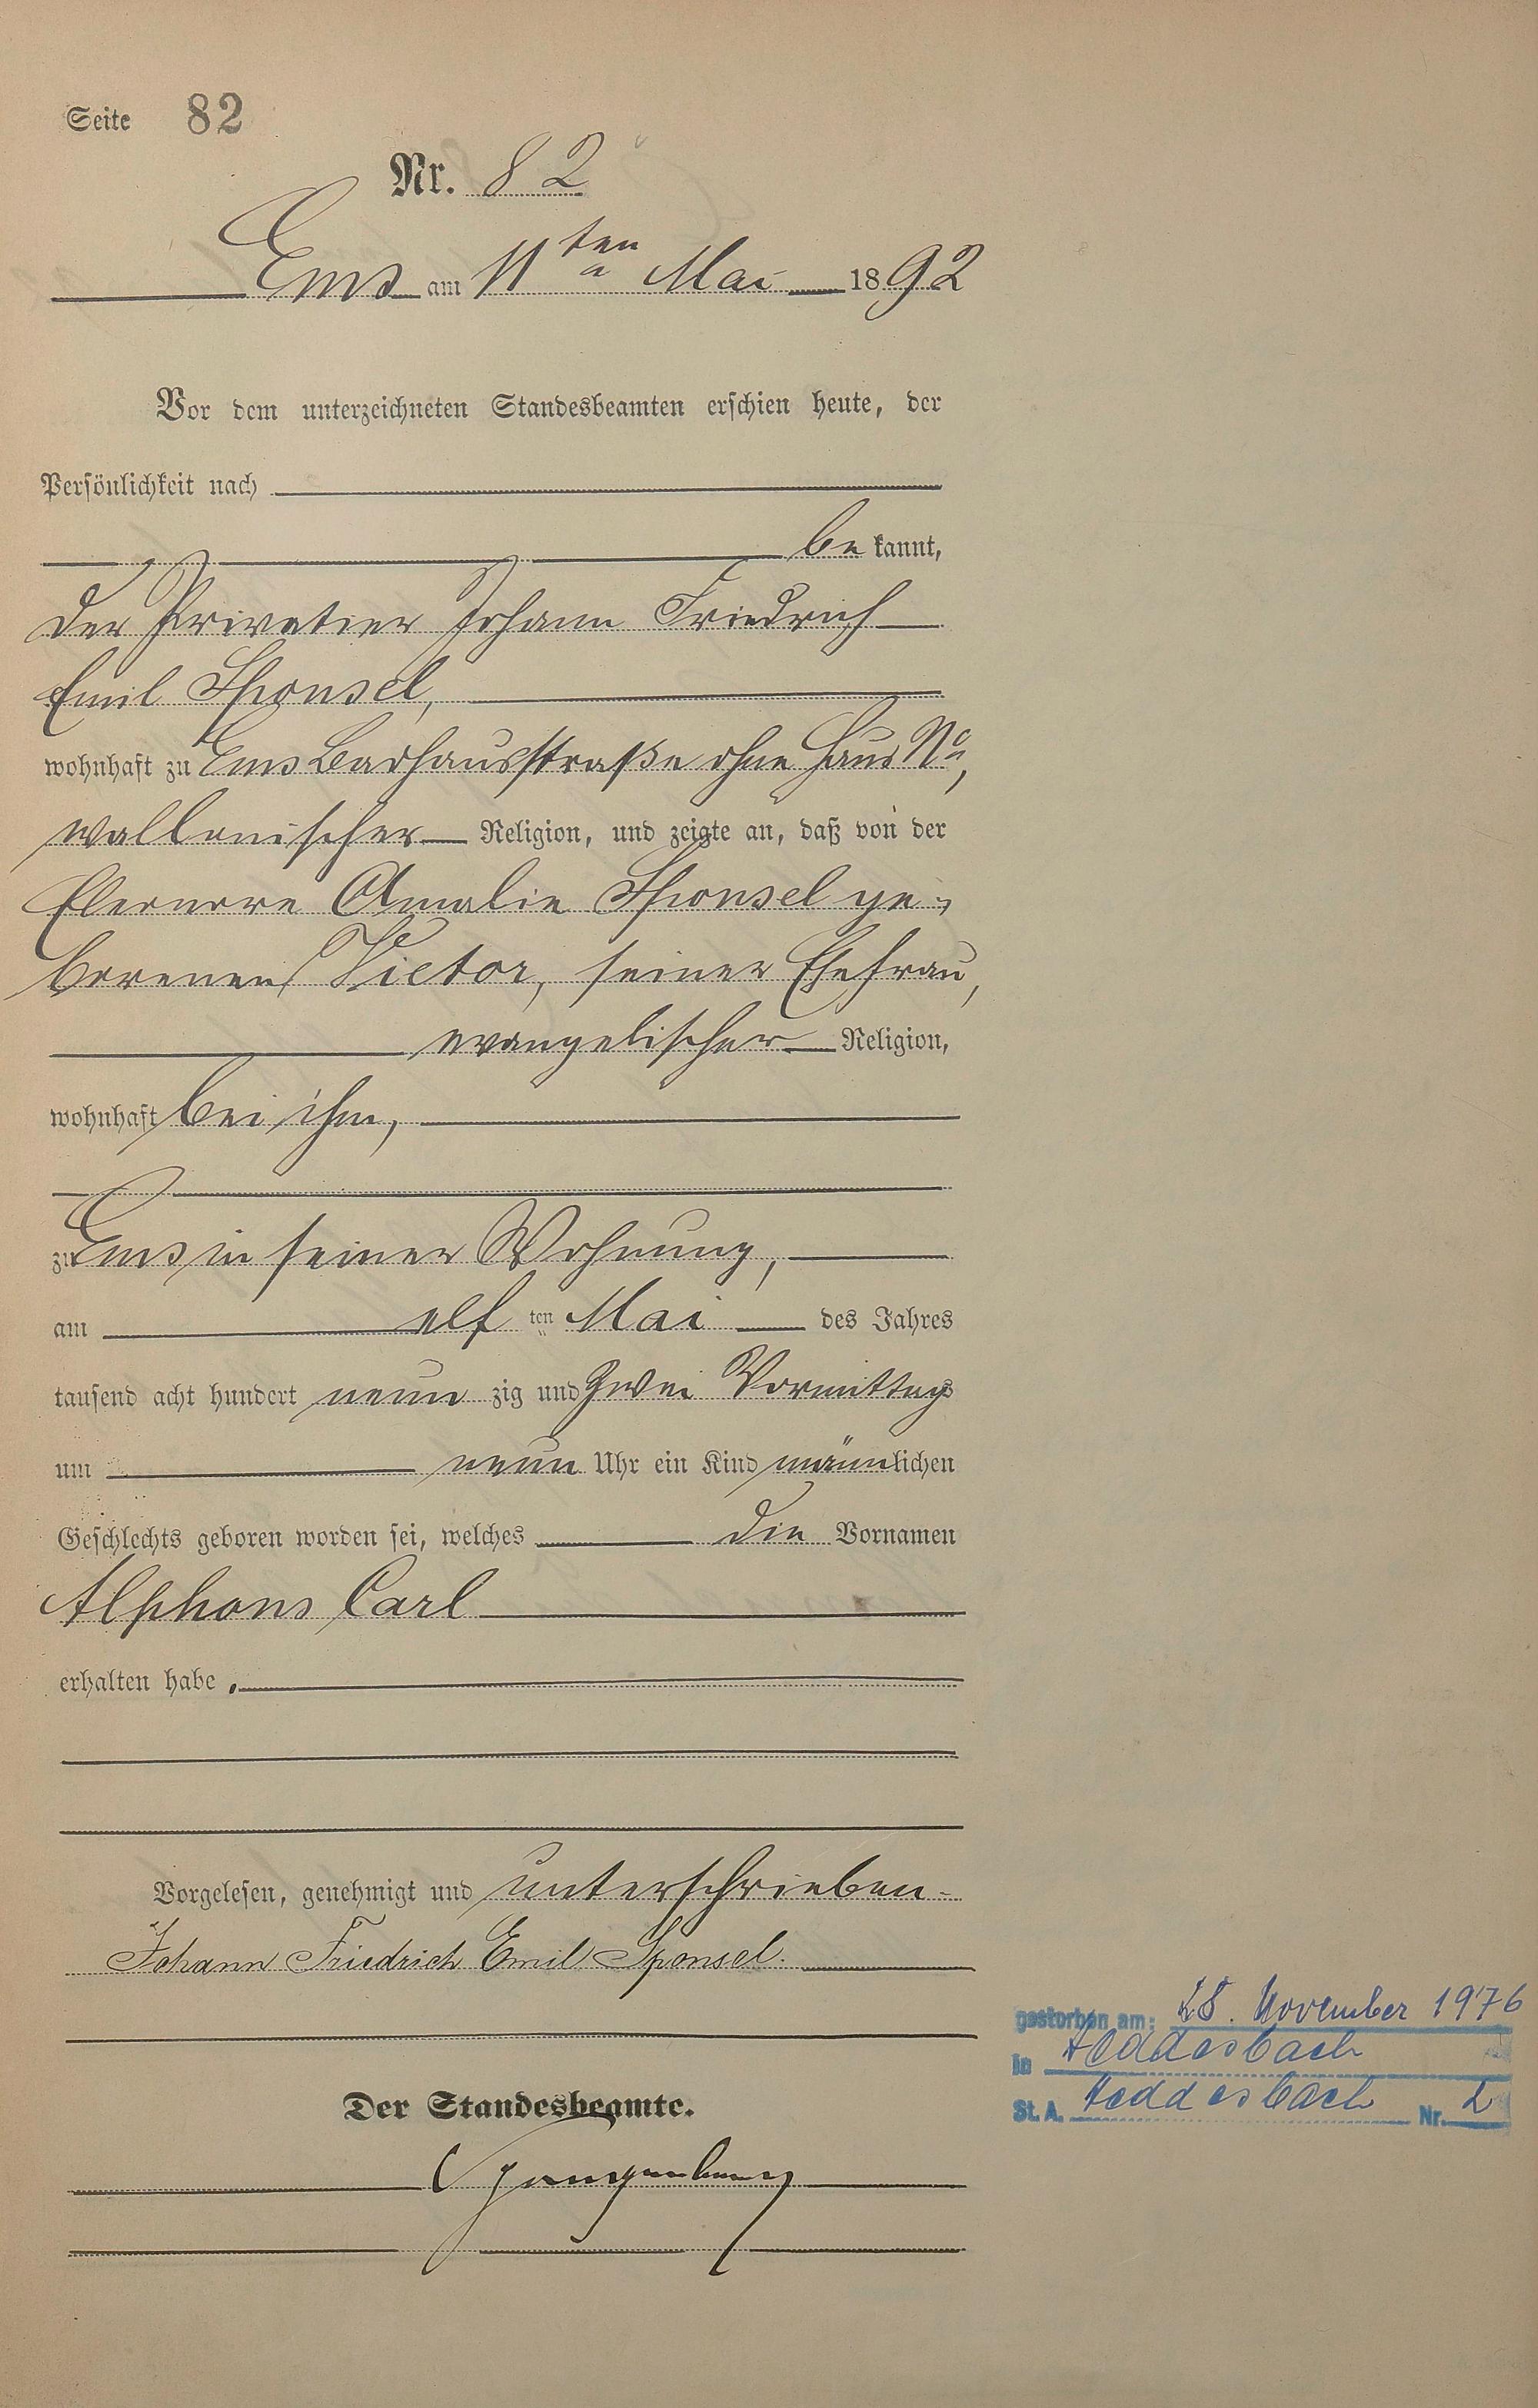 Seite 82
Nr. 82
Ems am 11ten Mai 1892
Vor dem unterzeichneten Standesbeamten erschien heute, der
Persönlichkeit nach
be kannt,
der Privatier Johann Friedrich
Emil Sponsel,
wohnhaft zu Ems Badhausstraße ohne Haus No,
wallonischer Religion, und zeigte an, daß von der
Eleonore Amalie Sponsel ge-
borenen Victor, seiner Ehefrau,
evangelischer Religion,
wohnhaft bei ihm,
zu Ems in seiner Wohnung,
am elf ten Mai des Jahres
tausend acht hundert neun zig und zwei Vormittags
um neun Uhr ein Kind männlichen
Geschlechts geboren worden sei, welches die Vornamen
Alphons Carl
erhalten habe.
Vorgelesen, genehmigt und unterschrieben.
Johann Friedrich Emil Sponsel.
Der Standesbeamte.
gestorben am: 28. November 1976
in Heddesbach
St. A. Heddesbach Nr. 2